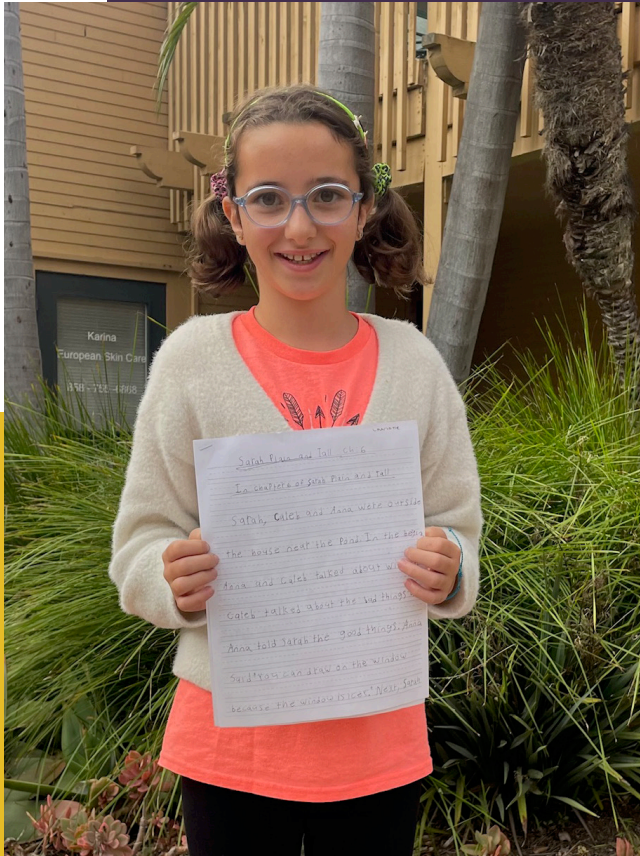 Karina
European Skin Care
Sarah Plain and Tall Ch. 6
In chapter 6 of Sarah Plain and Tall
Sarah, Caleb and Anna were outside
the house near the Pond. In the
Anna and Caleb talked about
Caleb talked about the bad things.
Anna told Sarah the good things. Anna
Said "You can draw on the window
because the window
Next, Sarah